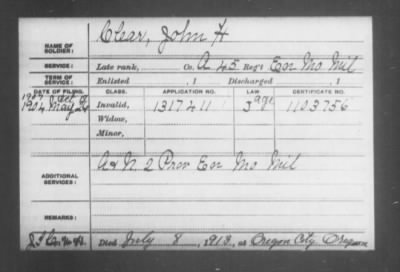 Clear, John H
NAME OF SOLDIER:
SERVICE: Late rank, Co. A 45 Reg't Enr Mo Mil
TERM OF SERVICE: Enlisted , 1 Discharged , 1
DATE OF FILING. CLASS. APPLICATION NO. LAW CERTIFICATE NO.
1904 May Invalid, 1317411 Jage 1103756
Widow,
Minor,
ADDITIONAL SERVICES: A & N. 2 Prov Enr Mo Mil
REMARKS:
Died July 8, 1913, at Oregon City Oregon